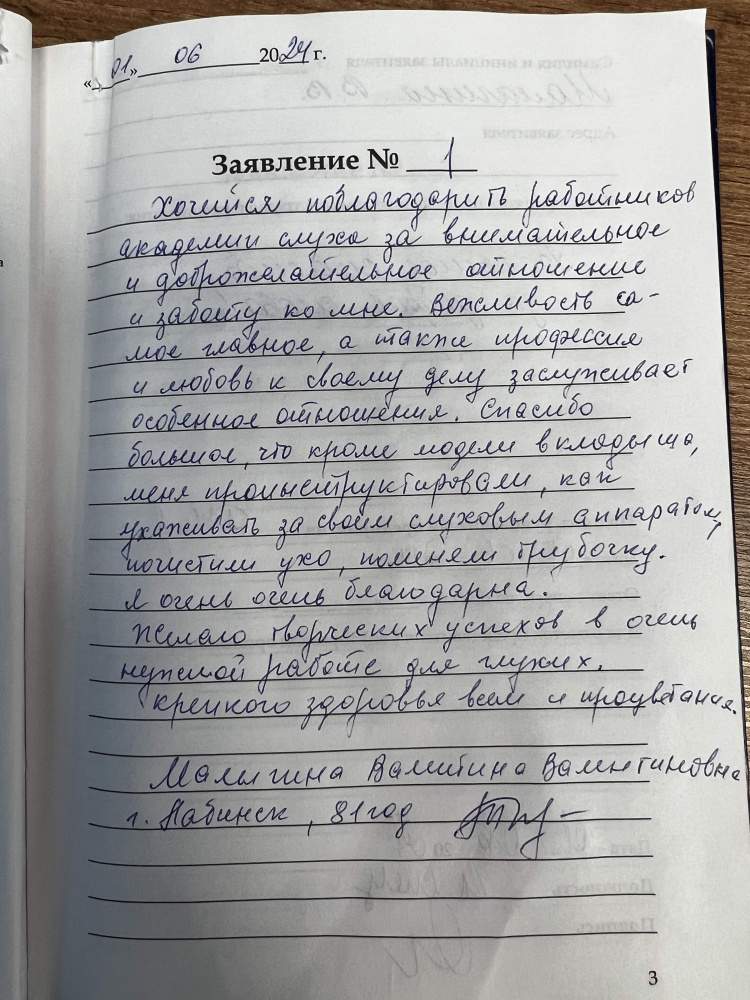 «01» 06 2024 г.
Заявление № 1
Хочется поблагодарить работников
академии слуха за внимательное
и доброжелательное отношение
и заботу ко мне. Вежливость са-
мое главное, а также профессия
и любовь к своему делу заслуживает
особенное отношения. Спасибо
большое, что кроме модели вкладыша,
меня проинструктировали, как
ухаживать за своим слуховым аппаратом,
почистили ухо, поменяли трубочку.
Я очень очень благодарна.
Желаю творческих успехов в очень
нужной работе для глухих.
Крепкого здоровья всем и процветания.
Малыгина Валентина Валентиновна
г. Лабинск, 81 год
3